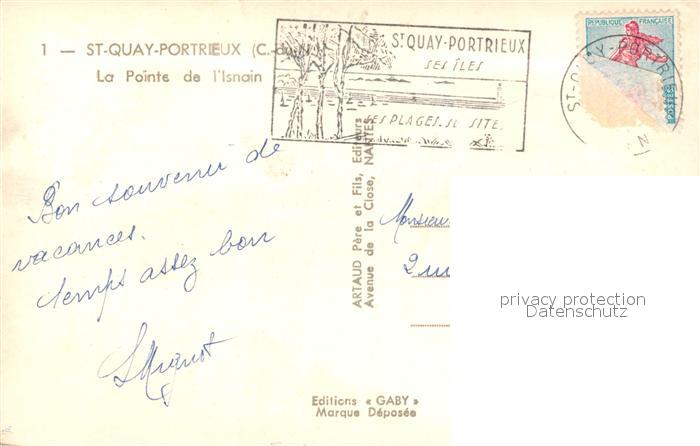 1 — ST-QUAY-PORTRIEUX (C.-du-N.)
La Pointe de l'Isnain
St QUAY-PORTRIEUX
SES ÎLES
SES PLAGES. SE SITE.
REPUBLIQUE FRANÇAISE
POSTES
ST-QUAY-PORTRIE
Bon souvenir de
vacances.
temps assez bon
Mignot
ARTAUD Père et Fils, Editeurs
Avenue de la Close, NANTES
Monsieur
2 rue
privacy protection
Datenschutz
Editions « GABY »
Marque Déposée